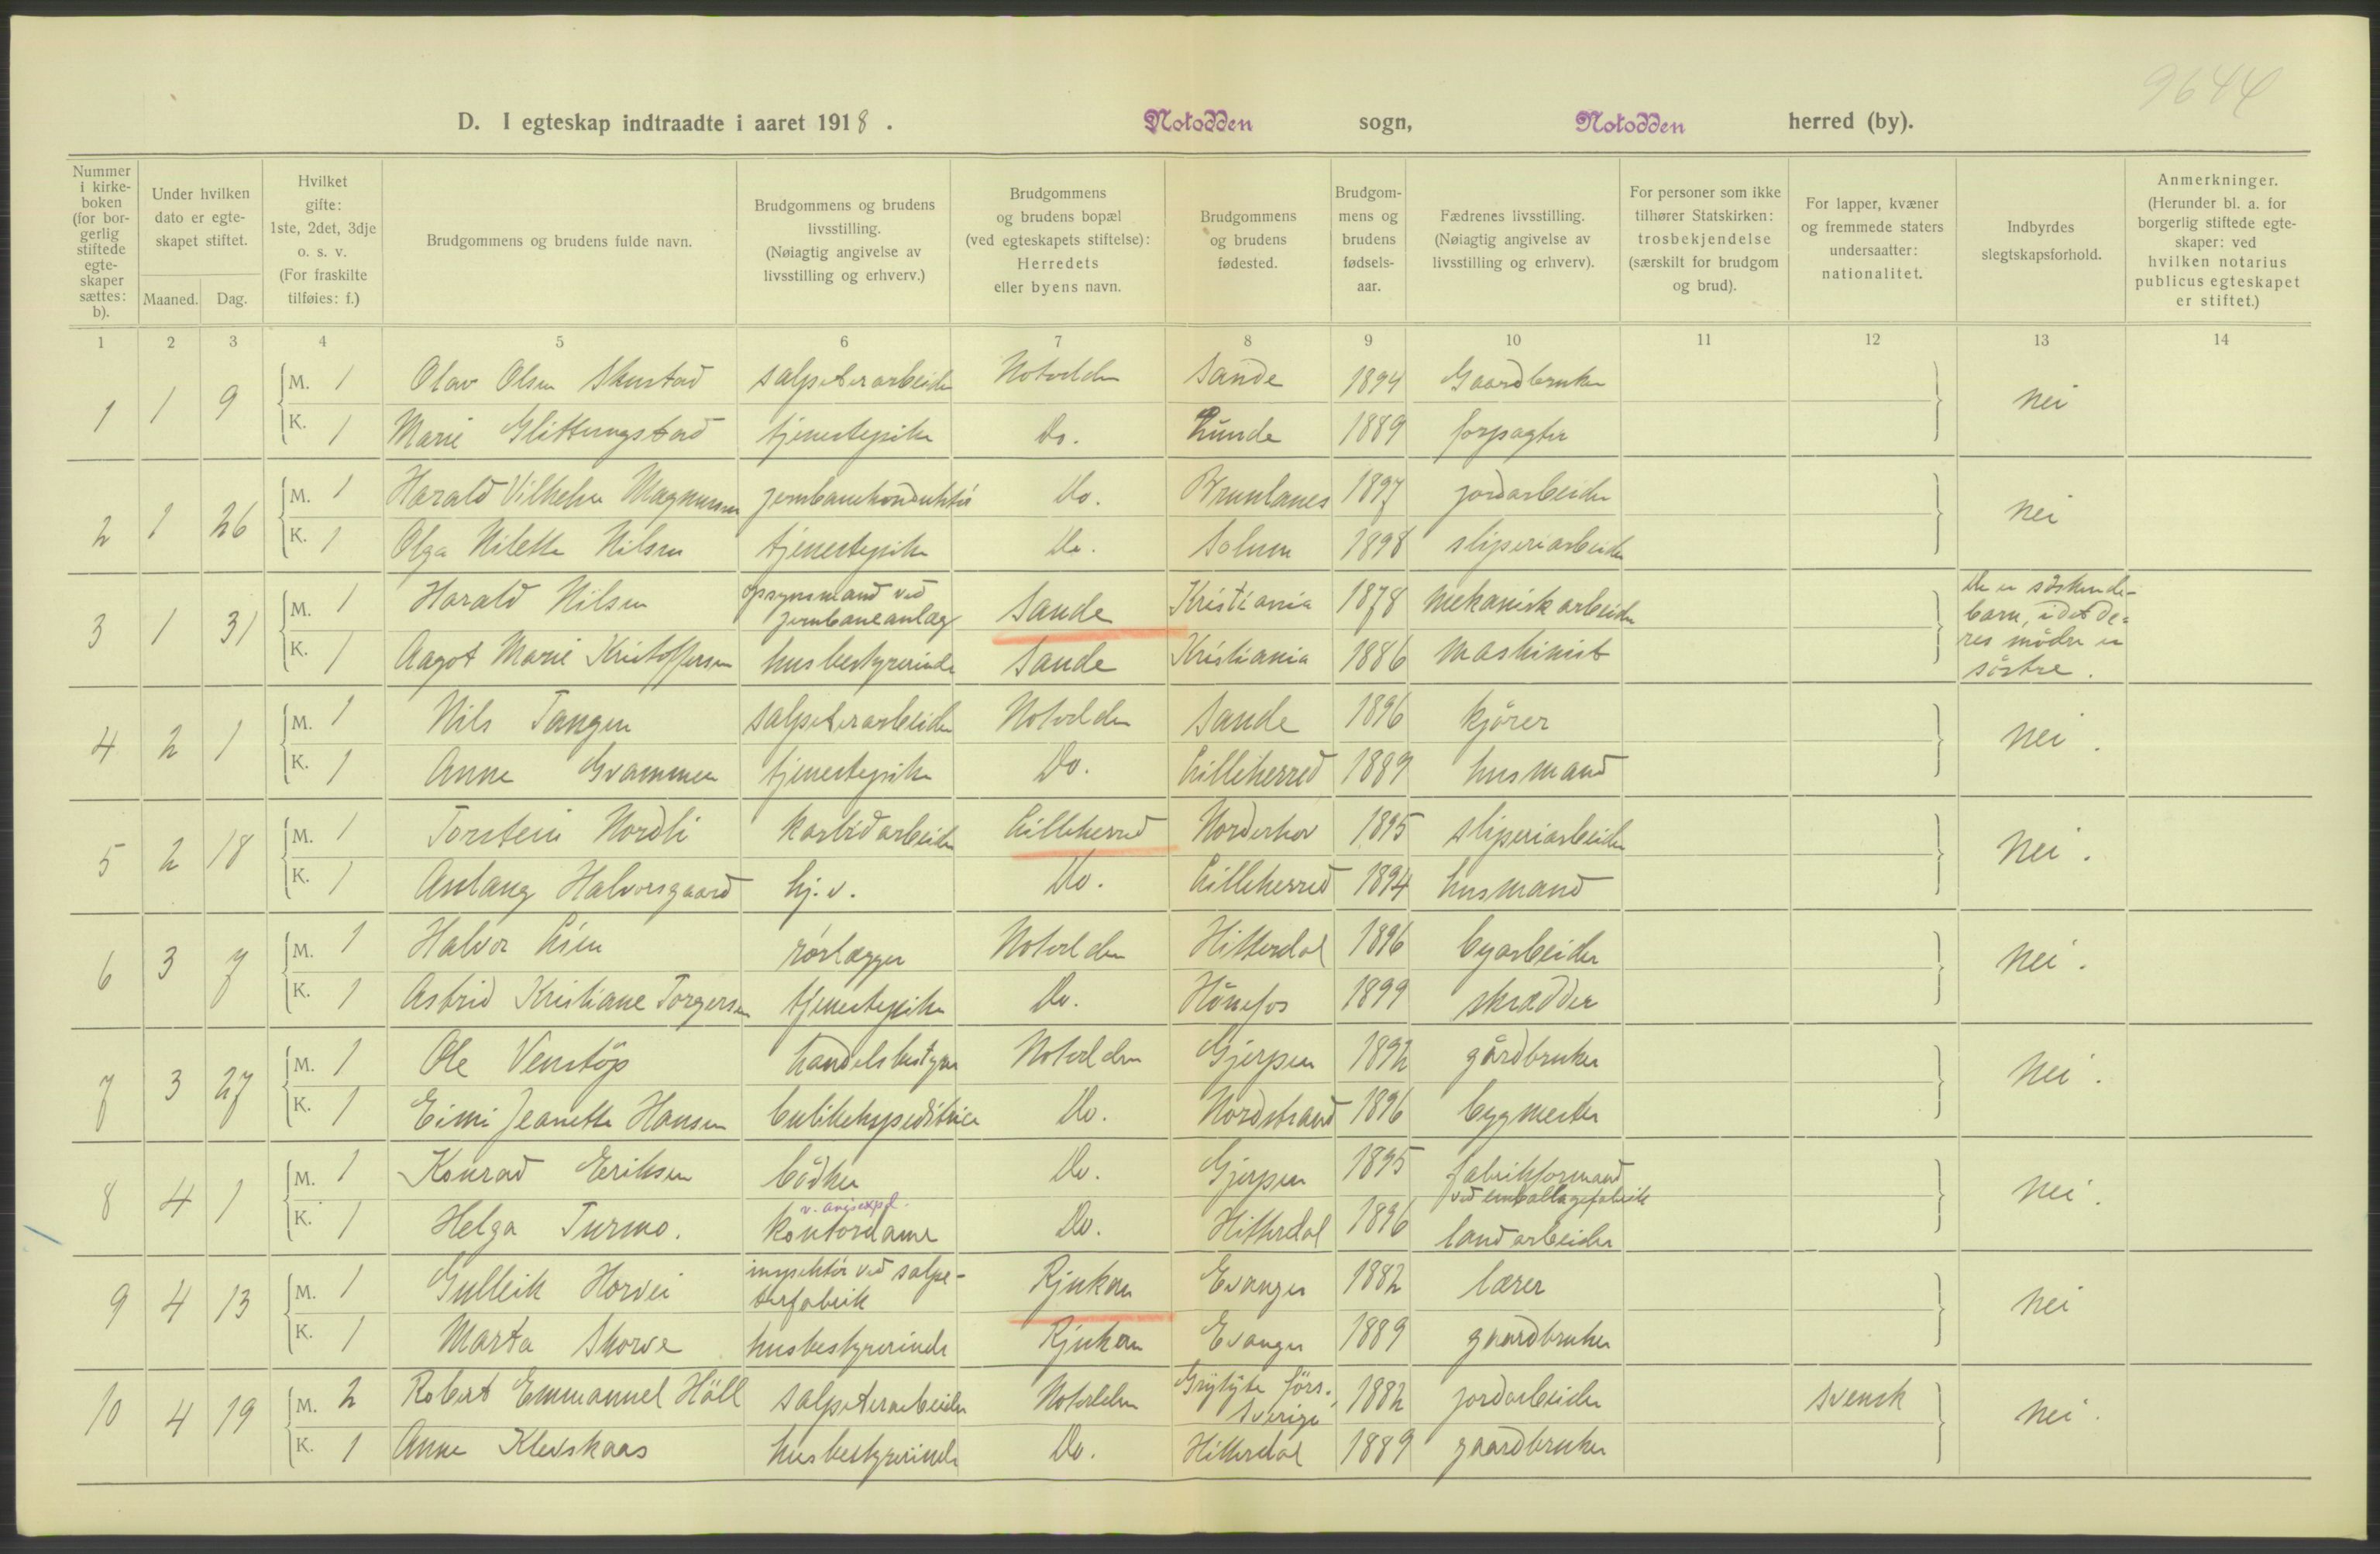 9644
D. I egteskap indtraadte i aaret 1918. Notodden sogn, Notodden herred (by).
Nummer i kirke-boken (for bor-gerlig stiftede egte-skaper sættes: b).
Under hvilken dato er egte-skapet stiftet.
Maaned. Dag.
Hvilket gifte: 1ste, 2det, 3dje o. s. v. (For fraskilte tilføies: f.)
Brudgommens og brudens fulde navn.
Brudgommens og brudens livsstilling. (Nøiagtig angivelse av livsstilling og erhverv.)
Brudgommens og brudens bopæl (ved egteskapets stiftelse): Herredets eller byens navn.
Brudgommens og brudens fødested.
Brudgom-mens og brudens fødsels-aar.
Fædrenes livsstilling. (Nøiagtig angivelse av livsstilling og erhverv).
For personer som ikke tilhører Statskirken: trosbekjendelse (særskilt for brudgom og brud).
For lapper, kvæner og fremmede staters undersaatter: nationalitet.
Indbyrdes slegtskapsforhold.
Anmerkninger. (Herunder bl. a. for borgerlig stiftede egte-skaper: ved hvilken notarius publicus egteskapet er stiftet.)
1 2 3 4 5 6 7 8 9 10 11 12 13 14
1 1 9 M. 1 Olav Olsen Skustad salpeterarbeider Notodden Sande 1894 Gaardbruker nei
K. 1 Marie Glitterngstad tjenestepike Do. Lunde 1889 forpagter
2 1 26 M. 1 Harald Vilhelm Magnussen jernbanekonduktør Do. Brunlanes 1897 jordarbeider nei
K. 1 Olga Nilette Nilsen tjenestepike Do. Solum 1898 sliperiarbeider
3 1 31 M. 1 Harald Nilsen opsynsmand ved jernbaneanlæg Sande Kristiania 1878 mekanisk arbeider De er søskende-barn, idet de=res mødre er søstre.
K. 1 Aagot Marie Kristoffersen husbestyrerinde Sande Kristiania 1886 maskinist
4 2 1 M. 1 Nils Tangen salpeterarbeider Notodden Sande 1896 kjører nei.
K. 1 Anne Gvammen tjenestepike Do. Lilleherred 1889 husmand
5 2 18 M. 1 Torstein Nordli karbidarbeider Lilleherred Norderhov 1895 sliperiarbeider nei.
K. 1 Aslaug Halvorsgaard hj. v. Do. Lilleherred 1894 husmand
6 3 7 M. 1 Halvor Lien rørlægger Notodden Hitterdal 1896 byarbeider nei.
K. 1 Astrid Kristiane Torgersen tjenestepike Do. Hönefos 1899 skrædder
7 3 27 M. 1 Ole Venstöp handelsbestyrer Notodden Gjerpen 1892 gårdbruker nei.
K. 1 Eimi Jeanette Hansen butikekspeditrice Do. Nordstrand 1896 bygmester
8 4 1 M. 1 Konrad Eriksen bödker Do. Gjerpen 1895 fabrikformand ved emballagefabrik nei.
K. 1 Helga Turmo. kontordame v. avisexpd. Do. Hitterdal 1896 landarbeider
9 4 13 M. 1 Gulleik Horvei inspektör ved salpe-terfabrik Rjukan Evanger 1882 lærer nei
K. 1 Marta Skorve husbestyrerinde Rjukan Evanger 1889 gaardbruker
10 4 19 M. 2 Robert Emmanuel Häll salpeterarbeider Notodden Grytyte förs. Sverige 1882 jordarbeider svensk nei.
K. 1 Anne Klevskaas husbestyrerinde Do. Hitterdal 1889 gaardbruker